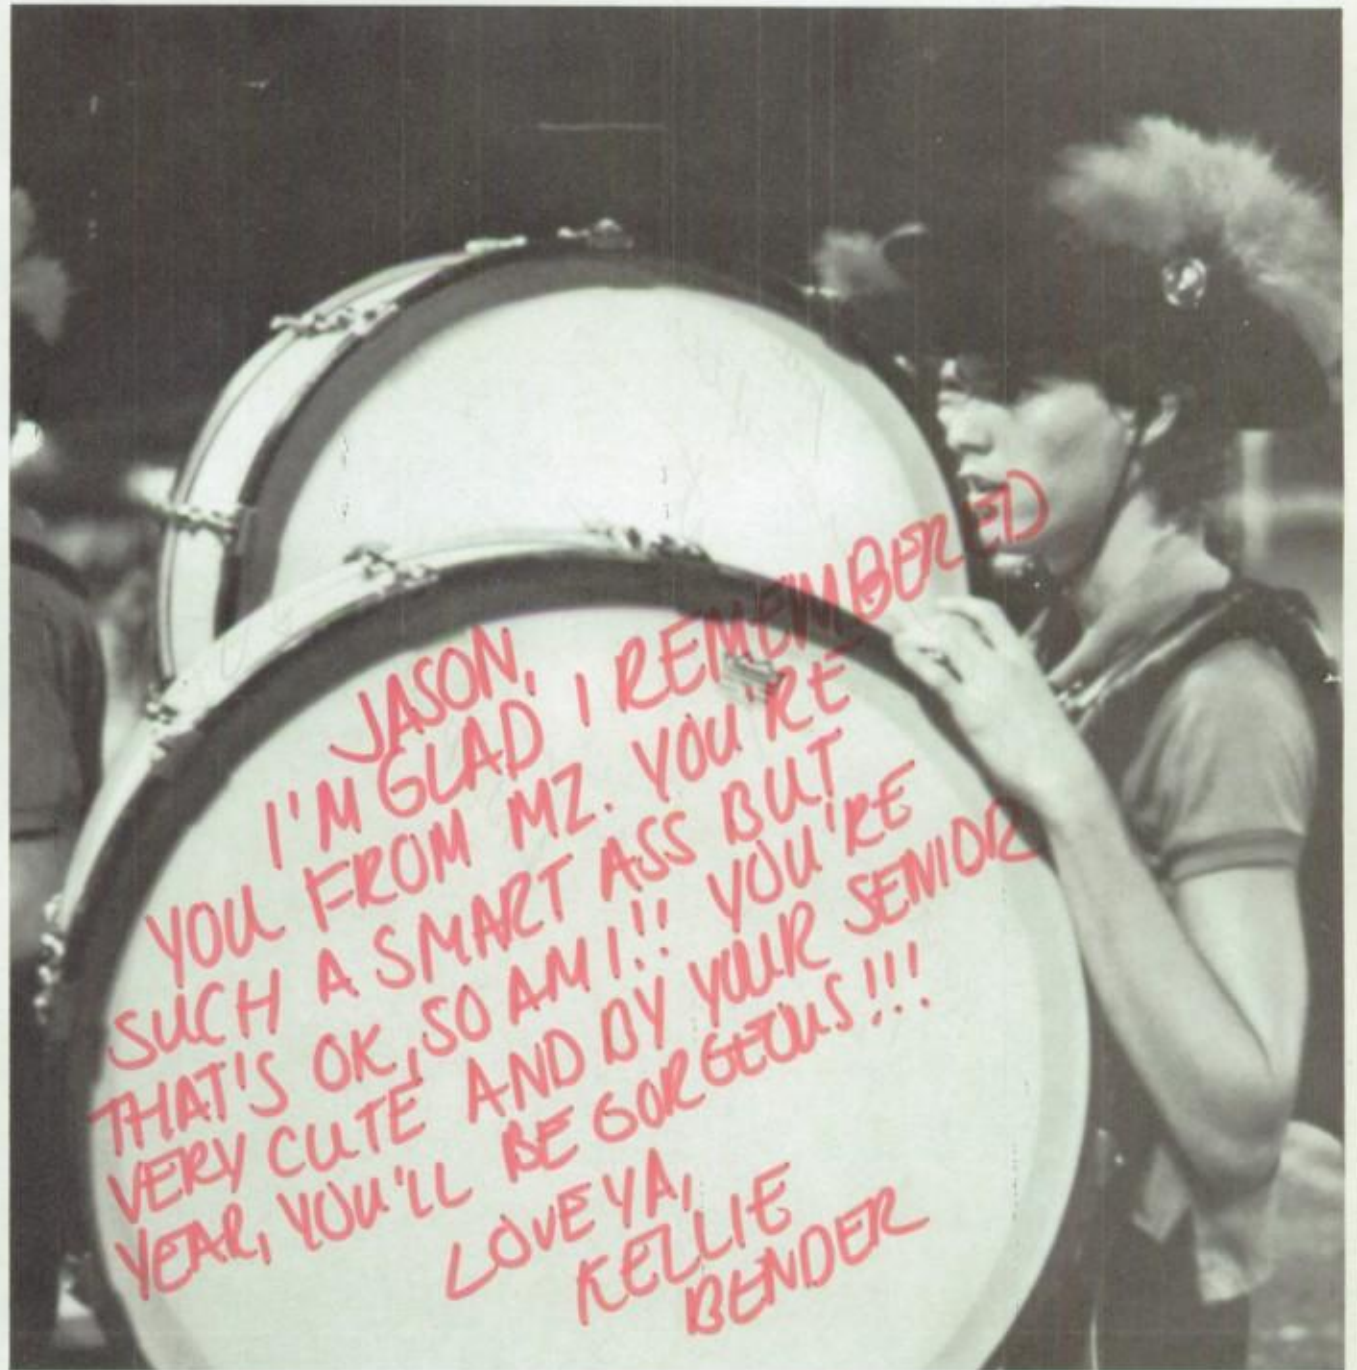 JASON,
I'M GLAD I REMEMBERED
YOU FROM MZ. YOU'RE
SUCH A SMART ASS BUT
THAT'S OK, SO AM I!! YOU'RE
VERY CUTE AND BY YOUR SENIOR
YEAR, YOU'LL BE GORGEOUS!!!
LOVE YA,
KELLIE
BENDER